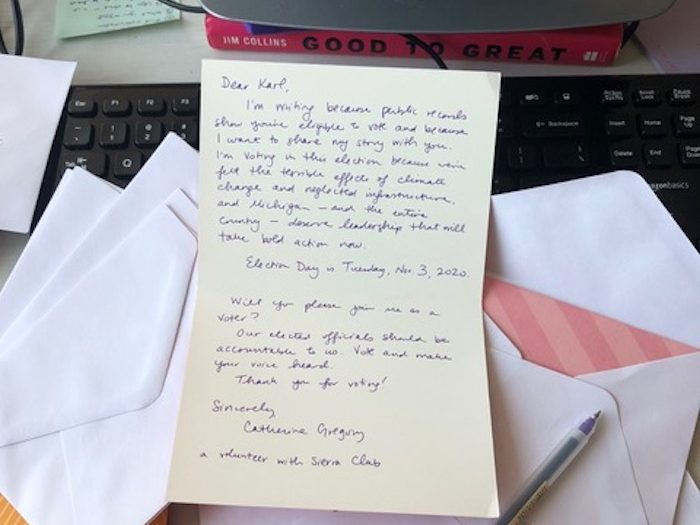 JIM COLLINS GOOD TO GREAT
Dear Karl,
I'm writing because public records
show you're eligible to vote and because
I want to share my story with you.
I'm voting in this election because we've
felt the terrible effects of climate
change and neglected infrastructure,
and Michigan — and the entire
country — deserve leadership that will
take bold action now.
Election Day is Tuesday, Nov. 3, 2020.
Will you please join me as a
voter?
Our elected officials should be
accountable to us. Vote and make
your voice heard.
Thank you for voting!
Sincerely,
Catherine Gregory
a volunteer with Sierra Club
Esc F1 F2 F3 F4
1 2
Backspace
Insert Home
Delete End
Page
amazonbasics